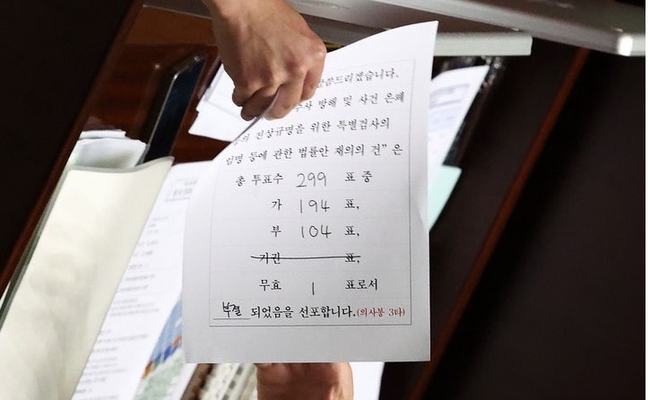 말씀드리겠습니다.
수사 방해 및 사건 은폐
진상규명을 위한 특별검사의
임명 등에 관한 법률안 재의의 건" 은
총 투표수 299 표 중
가 194 표,
부 104 표,
기권 표,
무효 1 표로서
부결 되었음을 선포합니다.(의사봉 3타)